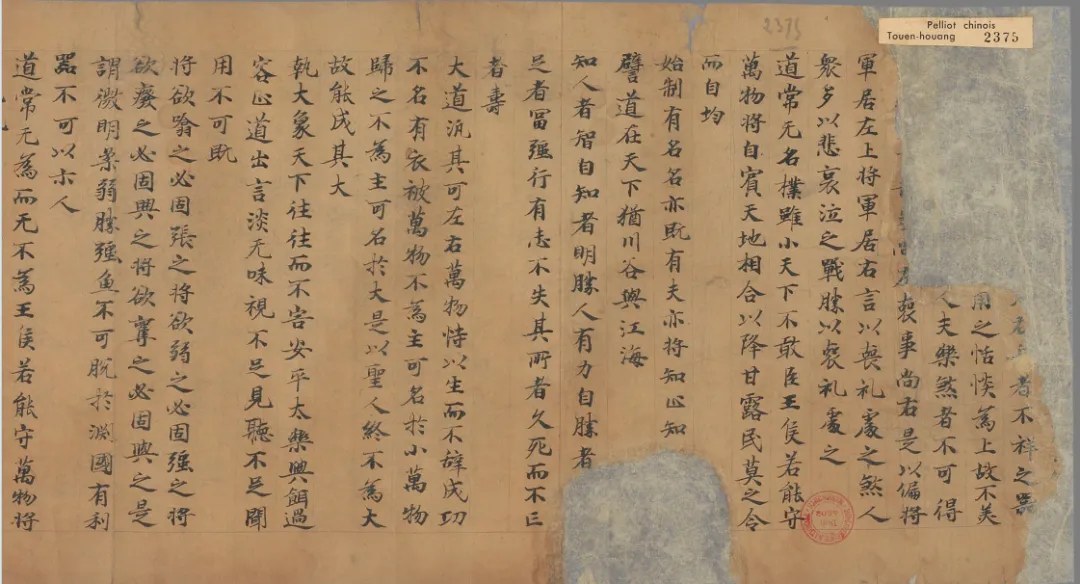 Pelliot chinois
Touen-houang 2375
2375
者不祥之器
用之恬惔為上故不美
人夫樂煞者不可得
喪事尚右是以偏將
軍居左上將軍居右言以喪礼處之煞人
衆多以悲哀泣之戰勝以喪礼處之
道常无名樸雖小天下不敢臣王侯若能守
萬物將自賓天地相合以降甘露民莫之令
而自均
始制有名名亦既有夫亦將知止知
譬道在天下猶川谷與江海
知人者智自知者明勝人有力自勝者
足者冨強行有志不失其所者久死而不亡
者壽
大道汎其可左右萬物恃以生而不辭成功
不名有衣被萬物不為主可名於小萬物
歸之不為主可名於大是以聖人終不為大
故能成其大
執大象天下往往而不害安平太樂與餌過
容止道出言淡无味視不足見聽不足聞
用不可既
將欲噏之必固張之將欲弱之必固強之將
欲癈之必固興之將欲奪之必固與之是
謂微明柔弱勝強魚不可脫於淵國有利
器不可以示人
道常无為而无不為王侯若能守萬物將